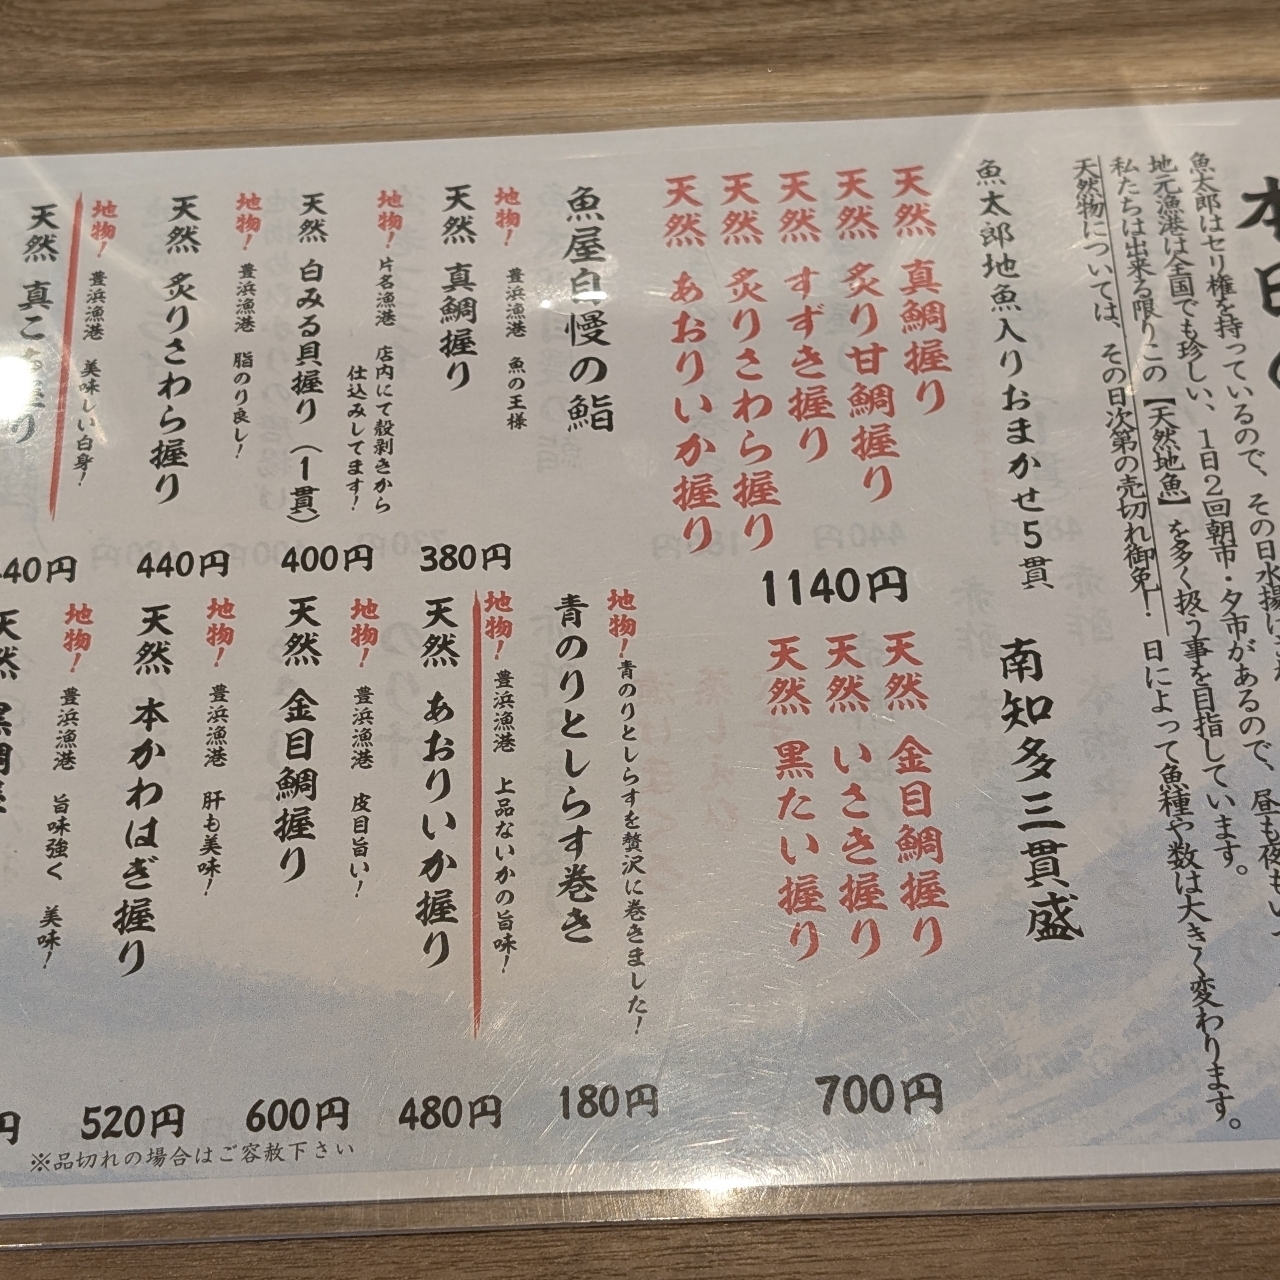 本日の
魚太郎はセリ権を持っているので、その日水揚げ
地元漁港は全国でも珍しい、1日2回朝市・夕市があるので、昼も夜も
私たちは出来る限りこの【天然地魚】を多く扱う事を目指しています。
天然物については、その日次第の売切れ御免！ 日によって魚種や数は大きく変わります。
魚太郎地魚入りおまかせ5貫
天然 真鯛握り
天然 炙り甘鯛握り
天然 すずき握り
天然 炙りさわら握り
天然 あおりいか握り
1140円
南知多三貫盛
天然 金目鯛握り
天然 いさき握り
天然 黒たい握り
700円
魚屋自慢の鮨
地物！ 豊浜漁港 魚の王様
天然 真鯛握り
380円
地物！ 片名漁港 店内にて殻剥きから
仕込みしてます！
天然 白みる貝握り（1貫）
400円
地物！ 豊浜漁港 脂のり良し！
天然 炙りさわら握り
440円
地物！ 豊浜漁港 美味しい白身！
天然 真こち握り
440円
地物！ 青のりとしらすを贅沢に巻きました！
青のりとしらす巻き
180円
地物！ 豊浜漁港 上品ないかの旨味！
天然 あおりいか握り
480円
地物！ 豊浜漁港 皮目旨い！
天然 金目鯛握り
600円
地物！ 豊浜漁港 肝も美味！
天然 本かわはぎ握り
520円
地物！ 豊浜漁港 旨味強く 美味！
天然 黒鯛
円
※品切れの場合はご容赦下さい